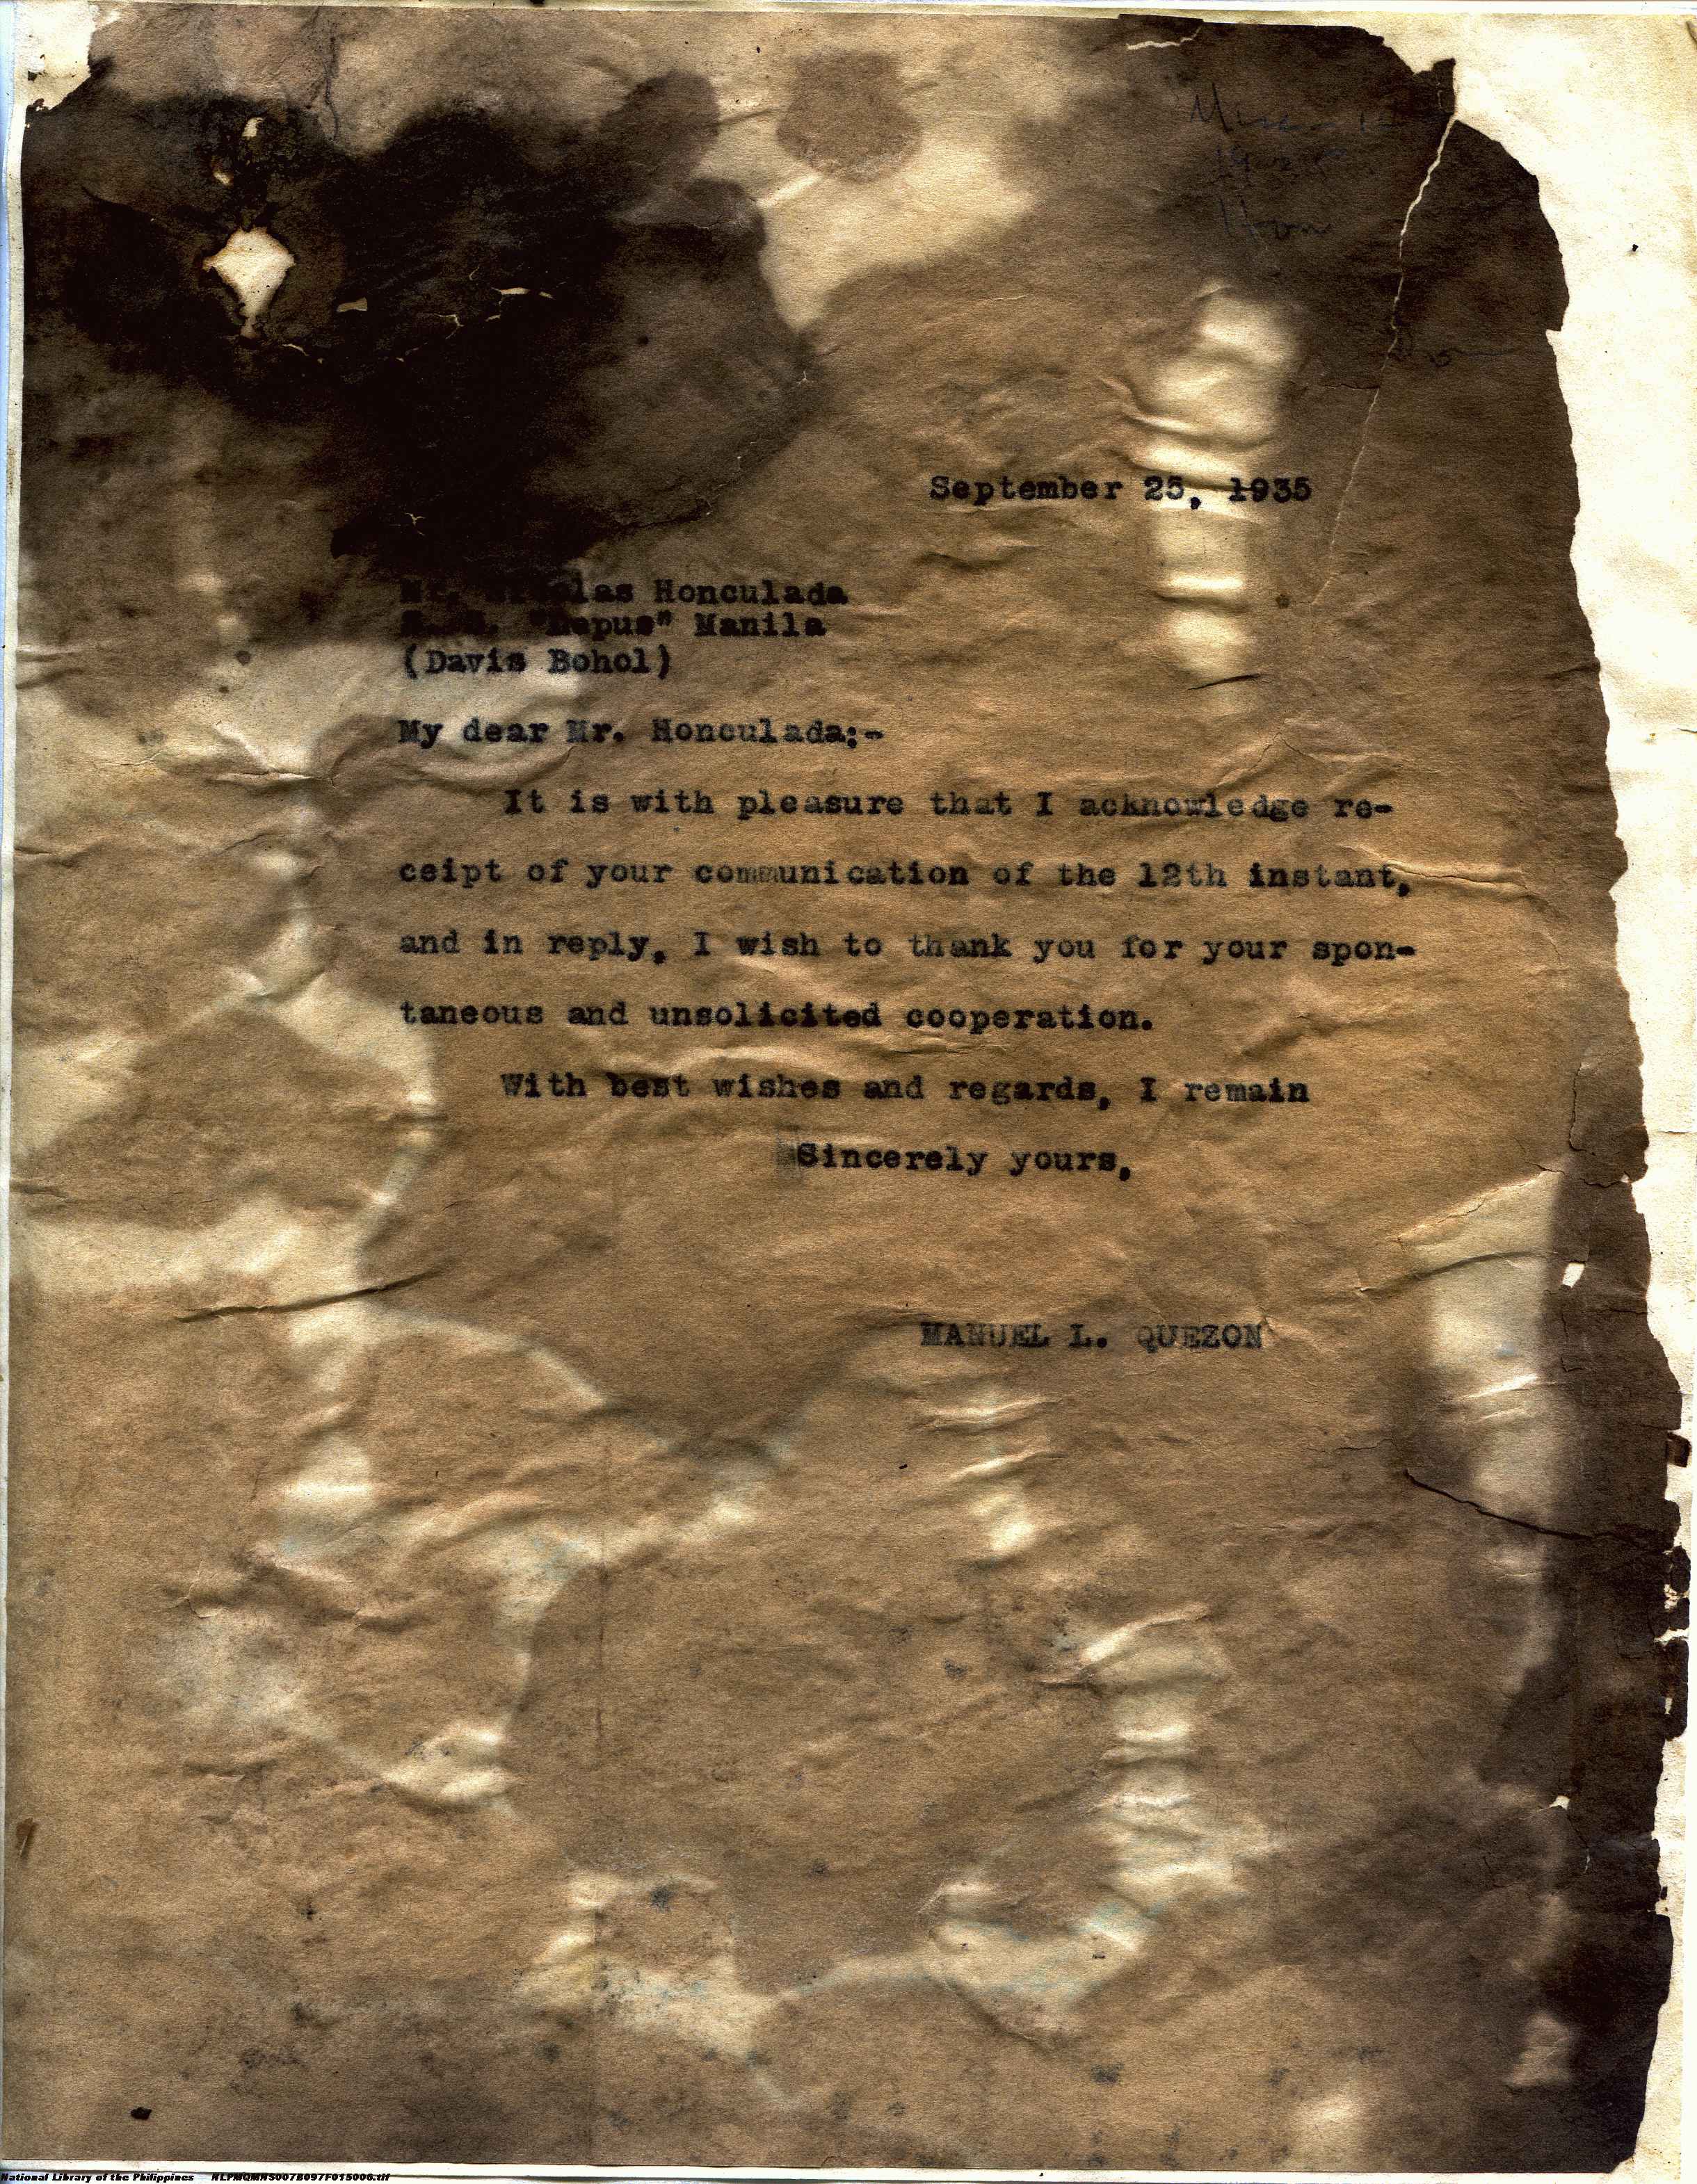 September 25, 1935
Mr. Nicolas Honculada
"Lepus" Manila
(Davis Bohol)
My dear Mr. Honculada:-
It is with pleasure that I acknowledge re-
ceipt of your communication of the 12th instant,
and in reply, I wish to thank you for your spon-
taneous and unsolicited cooperation.
With best wishes and regards, I remain
Sincerely yours,
MANUEL L. QUEZON
National Library of the Philippines NLPMQMNS007B097F015006.tif